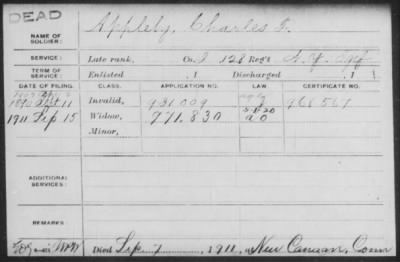 DEAD
NAME OF SOLDIER: Appleby, Charles F.
SERVICE: Late rank, Co. I 128 Reg't N.Y. Inf.
TERM OF SERVICE: Enlisted , 1 Discharged , 1
DATE OF FILING. CLASS. APPLICATION NO. LAW. CERTIFICATE NO.
Invalid, 931009 968567
1911 Sep 15 Widow, 771.830
Minor,
ADDITIONAL SERVICES:
REMARKS:
Died Sep. 7, 1911, at New Canaan, Conn